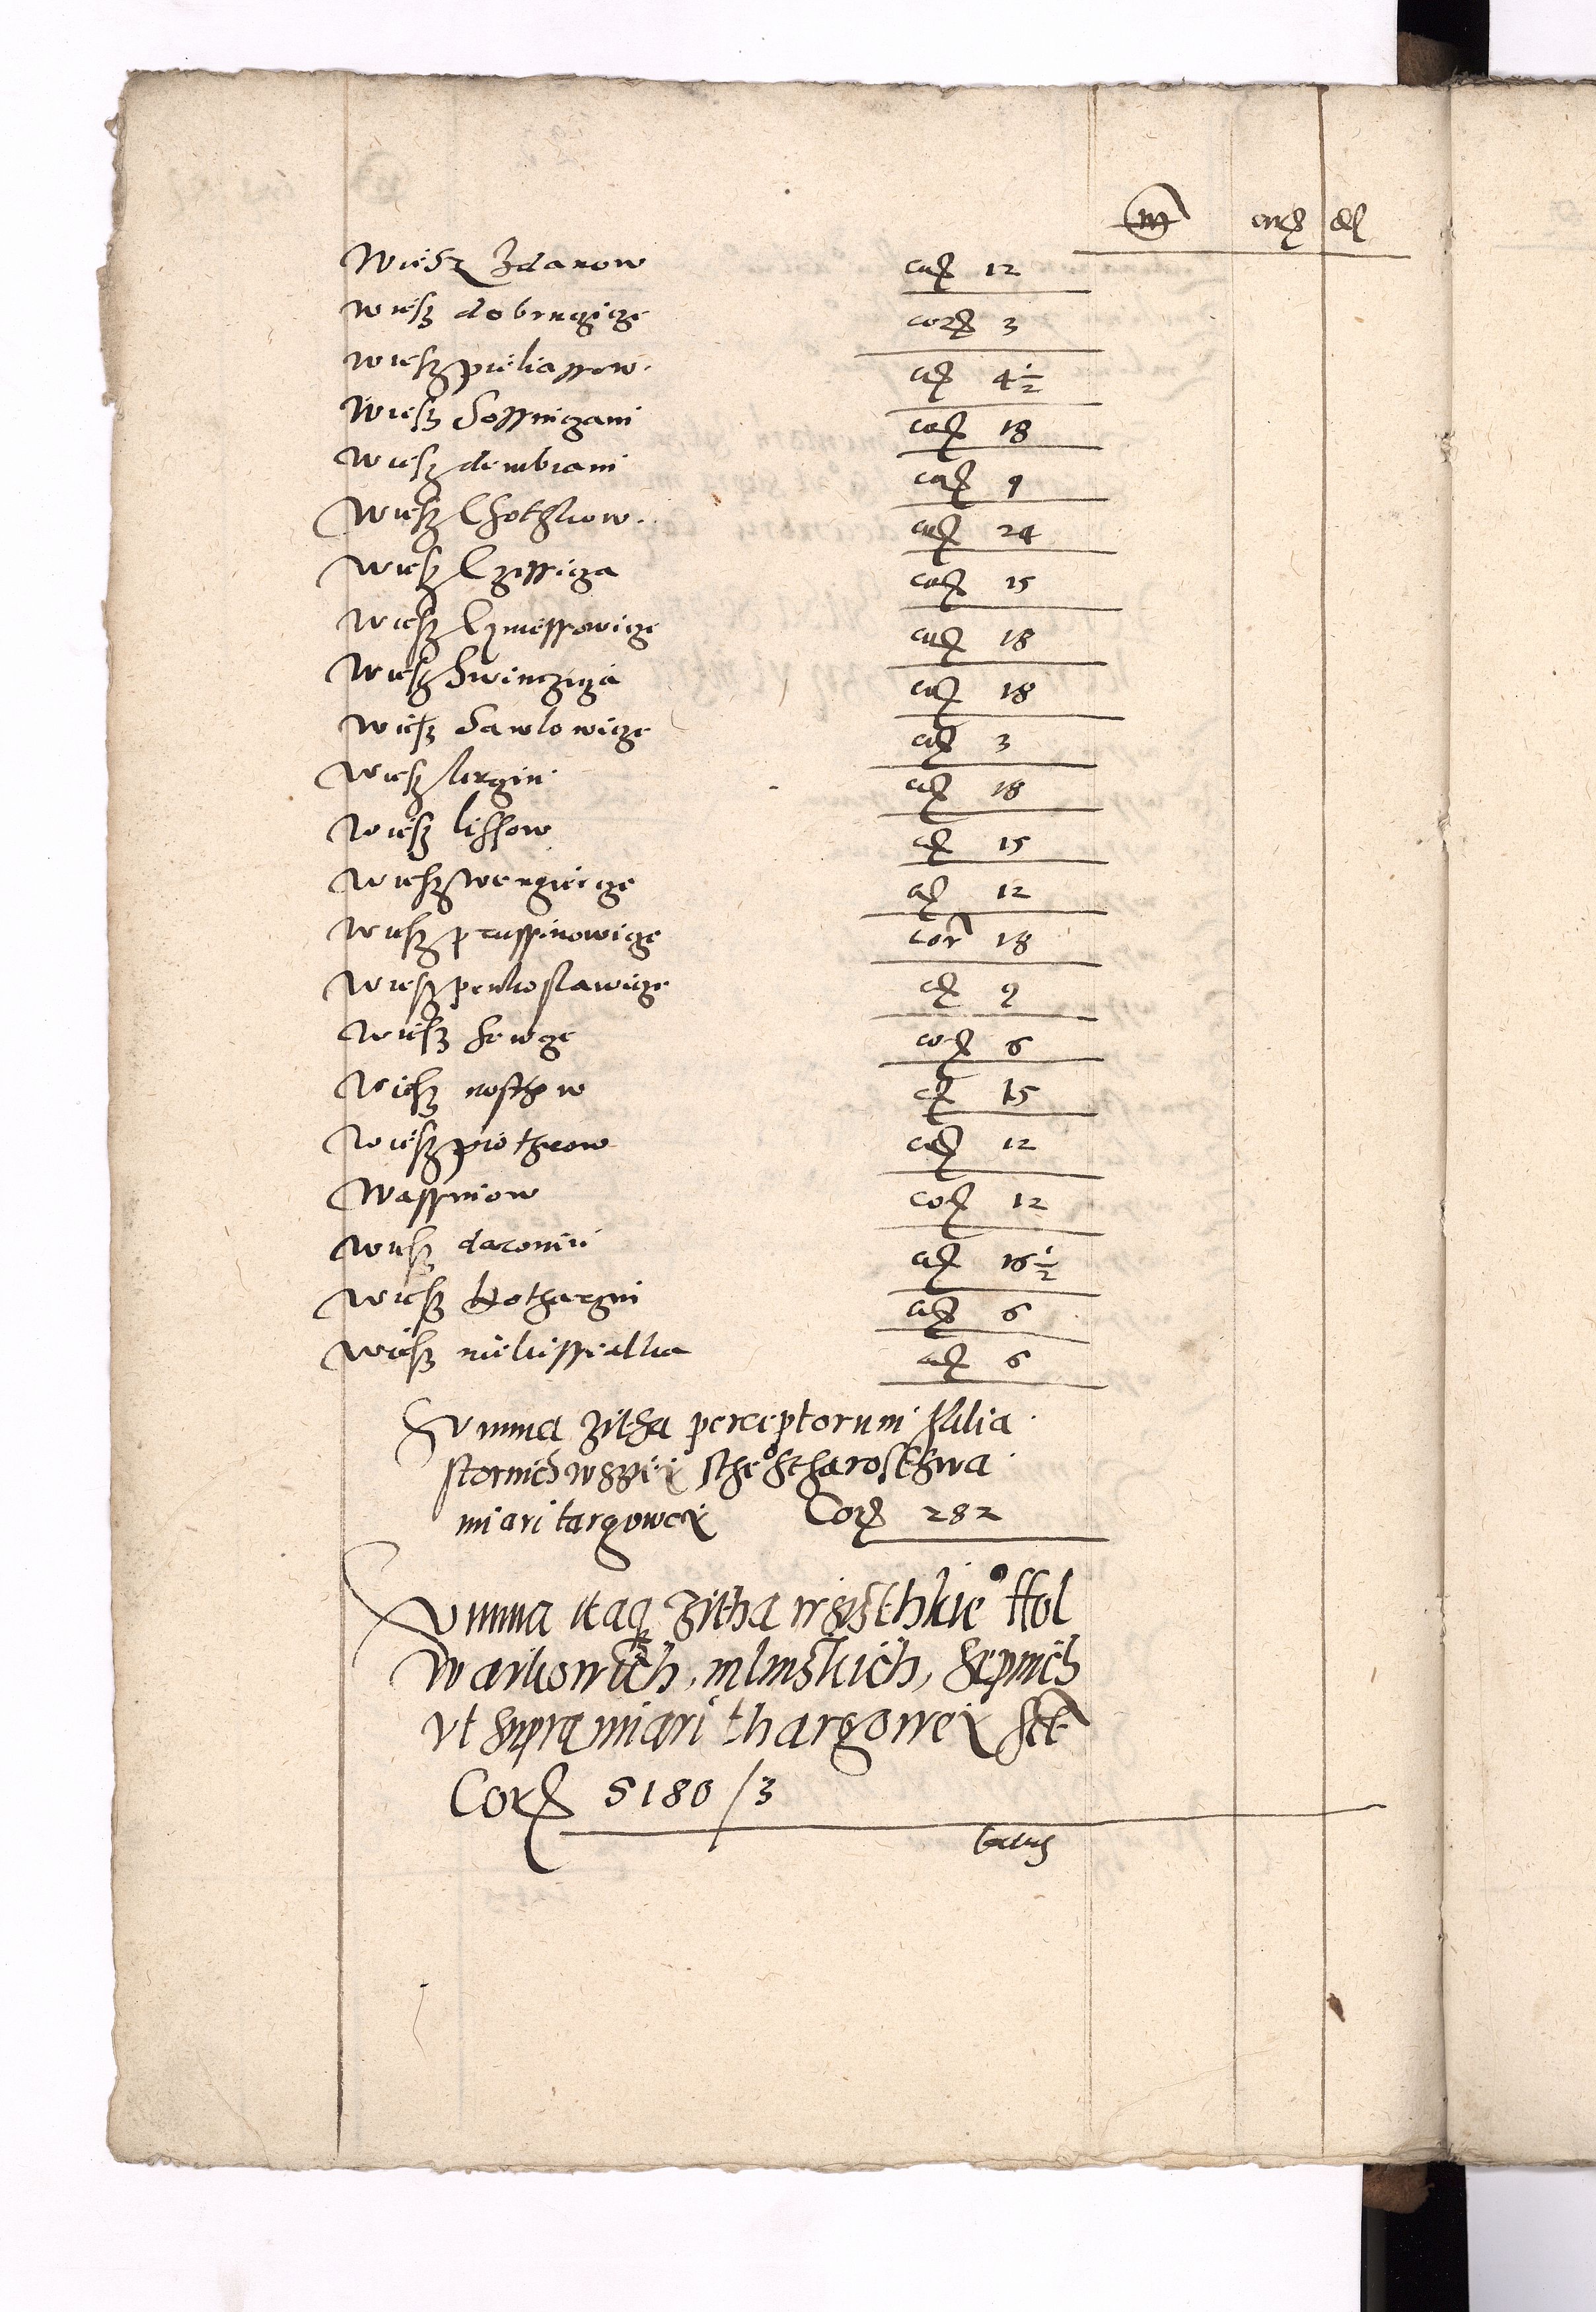 m
Wiesz Zdanow cor 12
wiesz dobrugicze cor 3
wiesz pieliassow cor 4 1/2
Wiesz Sossniczani cor 18
wiesz dembiani cor 9
wiesz Chothkow cor 24
wiesz Czessicza cor 15
wiesz Czmessowicze cor 18
wiesz Swinczicza cor 18
wiesz Sawlowicze cor 3
wiesz lergin cor 18
wiesz lissow cor 15
wiesz wengiercze cor 12
wiesz prussinowicze cor 18
wiesz penkoslawicze cor 9
wiesz cor 6
wiesz cor 15
wiesz piothrow cor 12
Wassniow cor 12
wiesz daromin cor 16 1/2
wiesz kothargni cor 6
wiesz cor 6
Summa zitha perceptorum
sthe° Stharosthwa
miari targowei Cor 282
Summa itaq zitha wszisthkie° ffol
warkowich, mlinskich, Sepnich
vt supra miari thargowei
Cor 5180/3
Latus